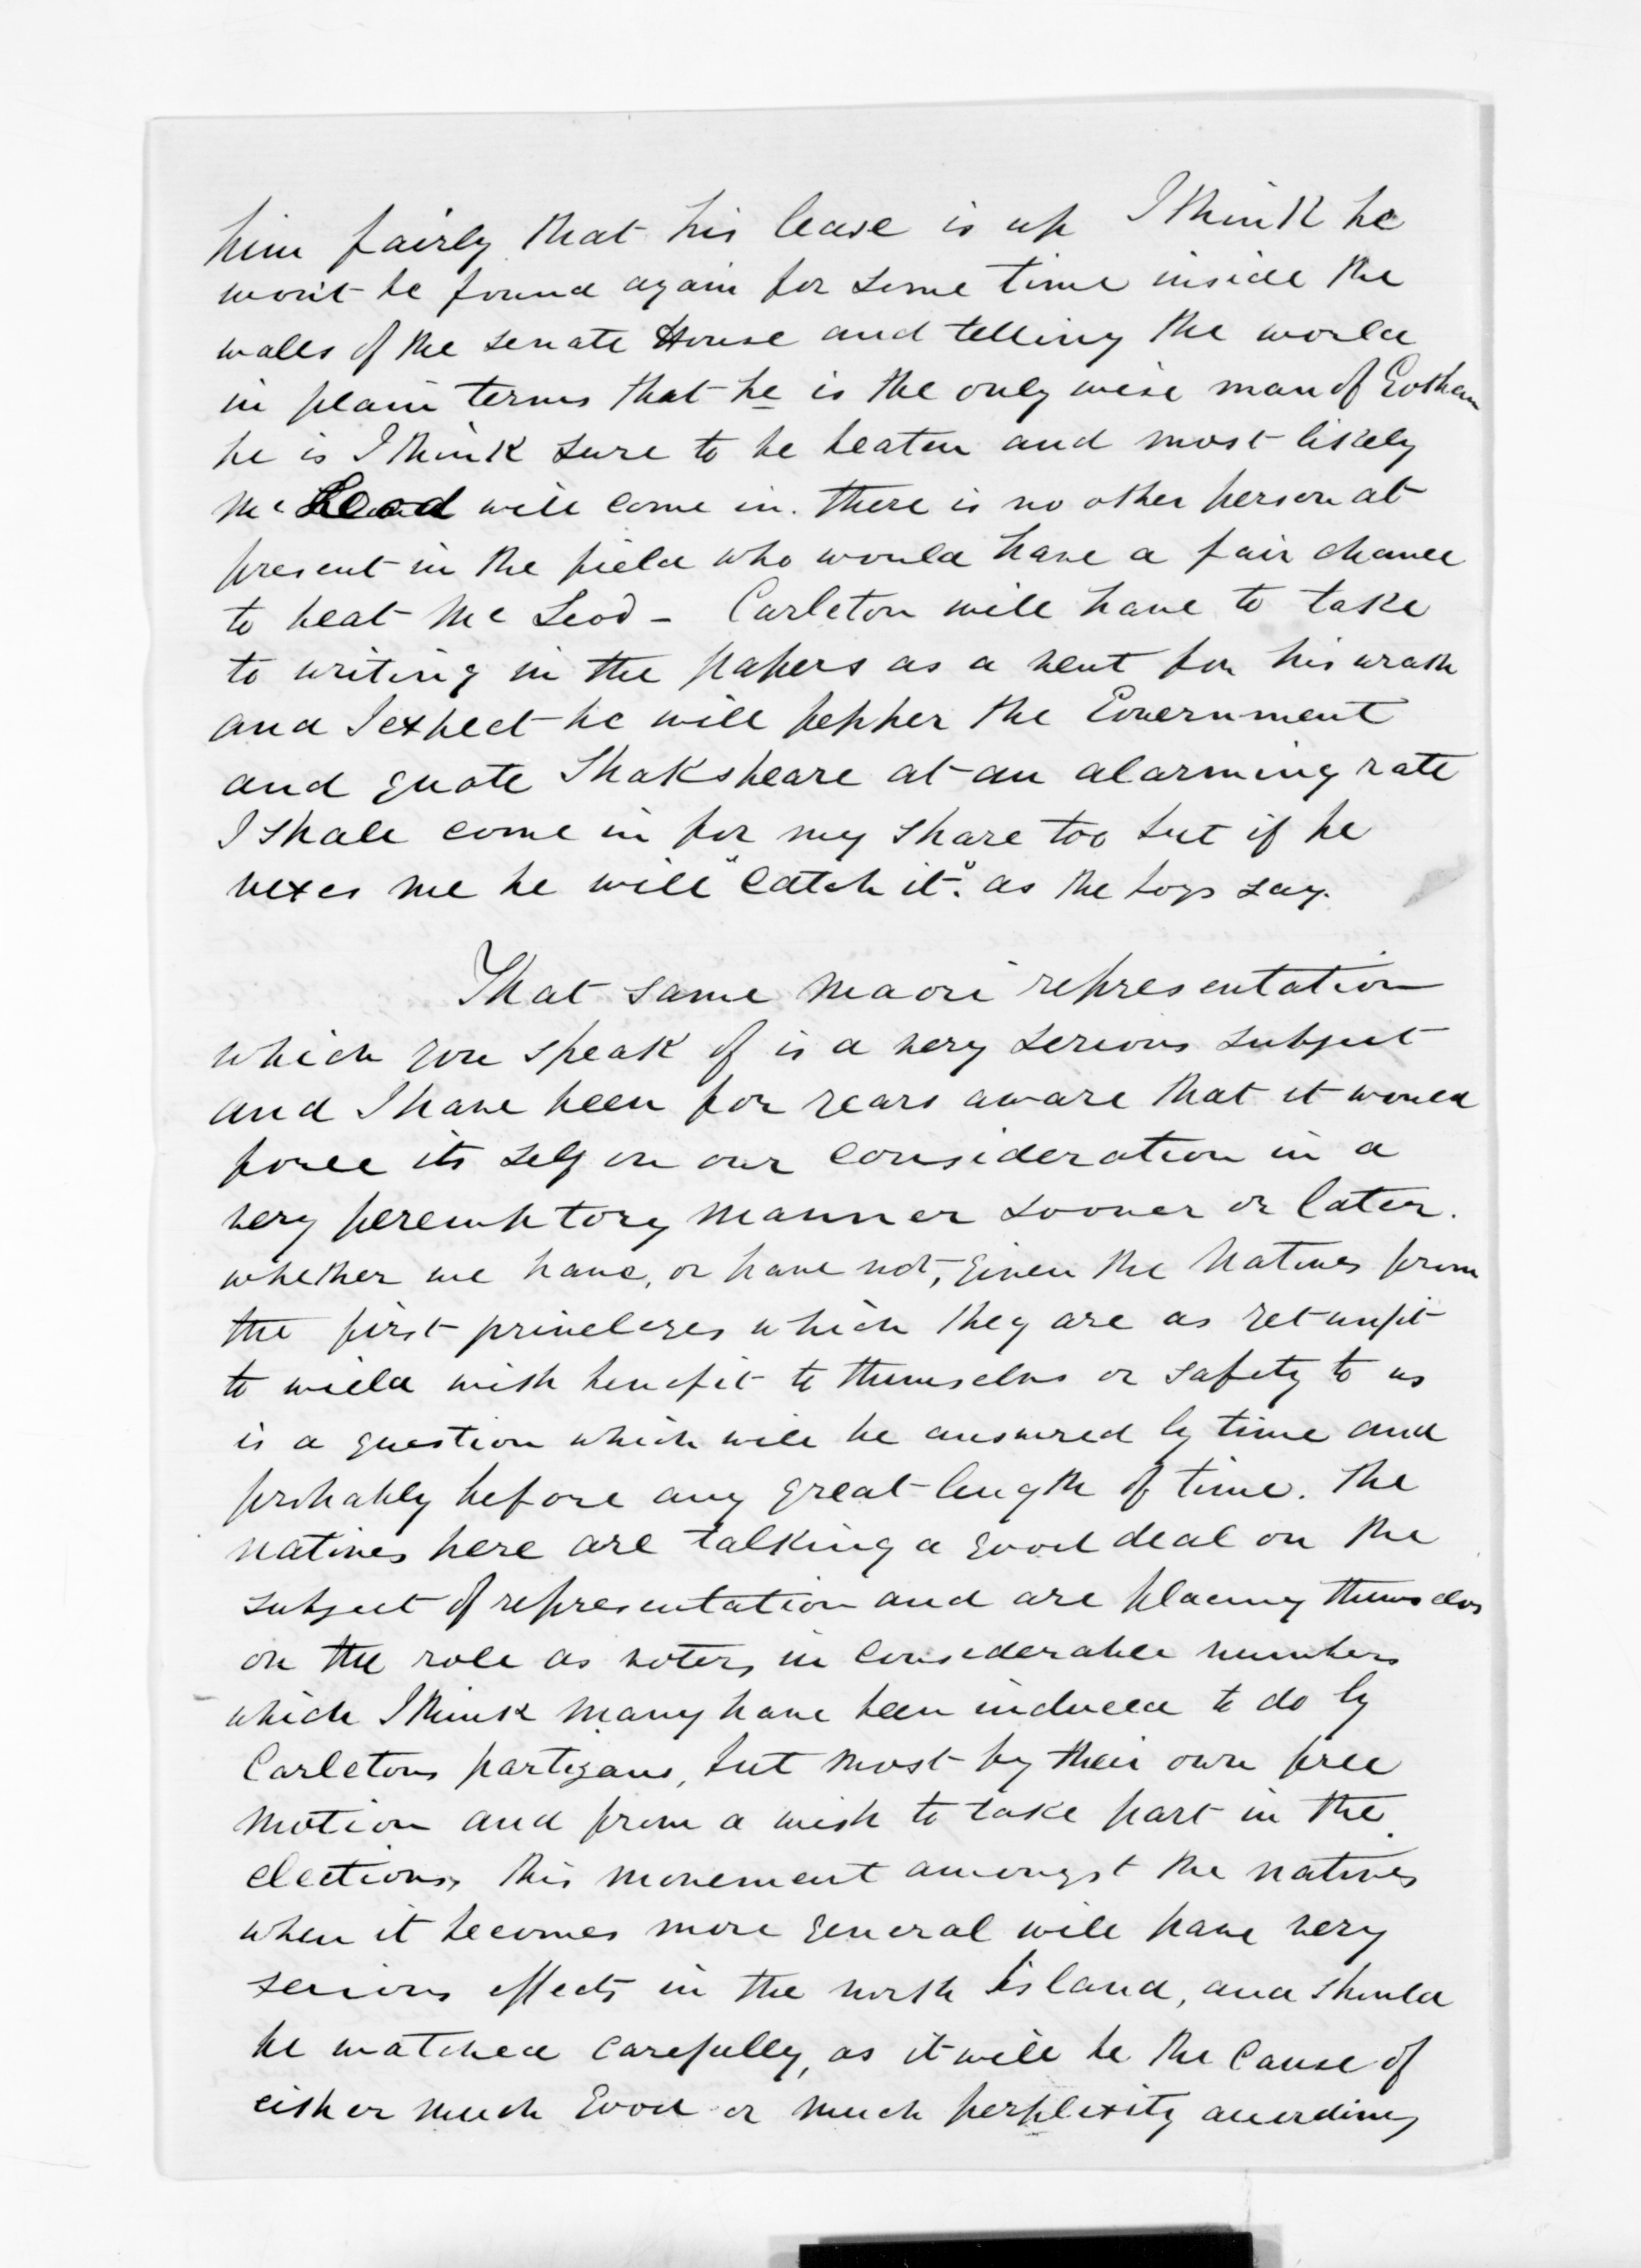 him fairly that his lease is up I think he
wont be found again for some time inside the
walls of the senate House and telling the world
in plain terms that he is the only wise man of Gotham
he is I think sure to be beaten and most likely
Mc Leod will come in. there is no other person at
present in the field who would have a fair chance
to beat Mc Leod - Carleton will have to take
to writing in the papers as a vent for his wrath
and I expect he will pepper the Government
and quote Shakspeare at an alarming rate
I shall come in for my share too but if he
vexes me he will "catch it". as the boys say.
That same maori representation
which you speak of is a very serious subject
and I have been for years aware that it would
force its self on our consideration in a
very peremptory manner sooner or later.
whether we have, or have not, given the Natives from
the first priveleges which they are as yet unfit
to wield with benefit to themselves or safety to us
is a question which will be answered by time and
probably before any great length of time. the
natives here are talking a good deal on the
subject of representation and are placing themselves
on the role as voters in considerable numbers
which I think many have been induced to do by
Carletons partizans, but most by their own free
motion and from a wish to take part in the
elections, this movement amongst the natives
when it becomes more general will have very
serious effects in the north Island, and should
be watched carefully, as it will be the cause of
either much Good or much perplexity according